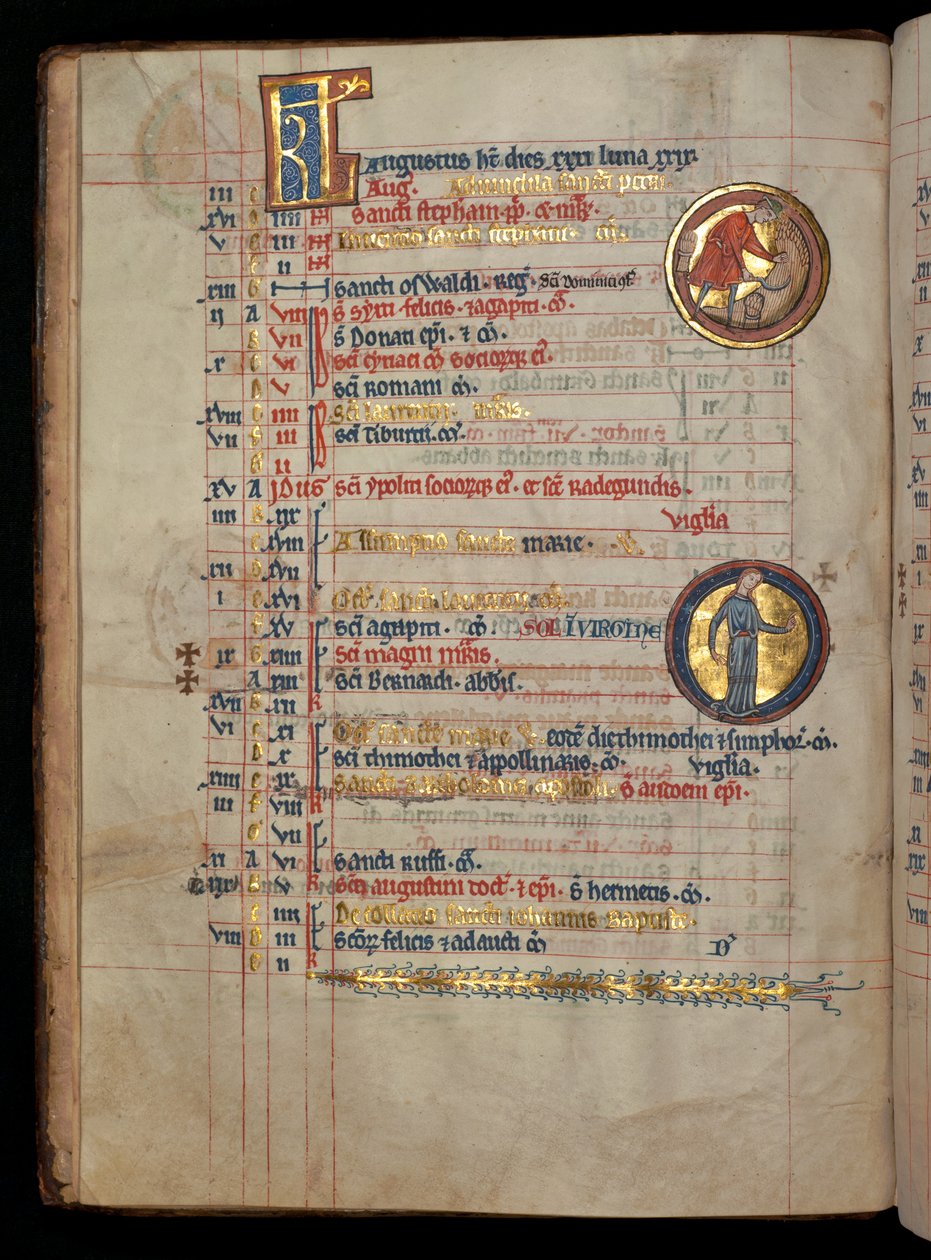 KL Augustus ht dies xxxi luna xxix.
iii c Aug. Ad vincula sancti petri.
xvi d iiii N Sancti stephani pp. et mr.
v e iii N Inuencio sancti stephani. m.
f ii N
xiii G sancti oswaldi. Reg. sci Dominici
ii A viii s sixti felicis. et agapiti. m.
B vii s Donati epi. et m.
x c vi sci cyriaci m sociorq; ei.
D v sci Romani m.
xviii e iiii Sci laurentii. mris.
vii f iii sci tiburtii. m.
G ii
xv A idus sci ypoliti sociorq; ei. et sce Radegundis.
iiii B xix viglia
c xviii Assumptio sancte marie.
xii D xvii
i e xvi Oct. sancti laurencii. m.
f xv sci agapiti. m. SOL I VIRGINE
ix G xiiii sci magni mris.
A xiii sci Bernardi. abbis.
xvii B xii
vi c xi Oct sancte marie eodē die thimothei et simphor. m.
D x sci thimothei et appollinaris. m. viglia.
xiiii e ix Sancti Bartholomei apostoli. s audoeni epi.
iii f viii
G vii
xi A vi sancti Ruffi. m.
xix B v sci augustini doct. et epi. s hermetis. m.
c iiii Decollatio sancti iohannis Baptiste.
viii D iii scorum felicis et adaucti m
e ii